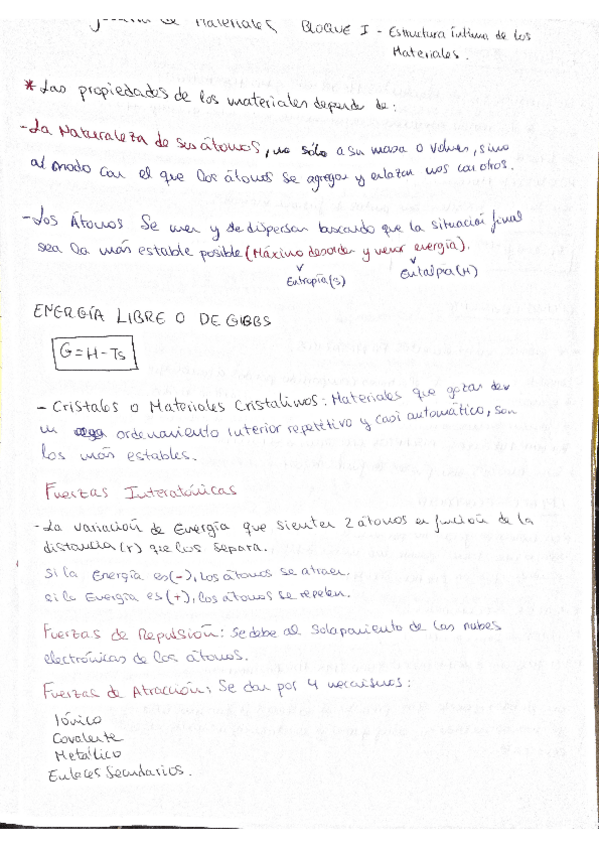 de Materiales BLOQUE I - Estructura íntima de los
Materiales.
* Las propiedades de los materiales depende de:
- La Naturaleza de sus átomos, no sólo a su masa o volumen, sino
al modo con el que los átomos se agregan y enlazan unos con otros.
- Los Átomos Se unen y se dispersan buscando que la situación final
sea la más estable posible (Máximo desorden y menor energía).
Entropía (S) Entalpía (H)
ENERGÍA LIBRE O DE GIBBS
G = H - TS
- Cristales o Materiales Cristalinos: Materiales que gozan de
un ordenamiento interior repetitivo y casi automático, son
los más estables.
Fuerzas Interatómicas
- La variación de Energía que sienten 2 átomos en función de la
distancia (r) que los separa.
si la Energía es (-), los átomos se atraen.
si la Energía es (+), los átomos se repelen.
Fuerzas de Repulsión: Se debe al Solapamiento de las nubes
electrónicas de los átomos.
Fuerzas de Atracción: Se dan por 4 mecanismos:
Iónico
Covalente
Metálico
Enlaces Secundarios.